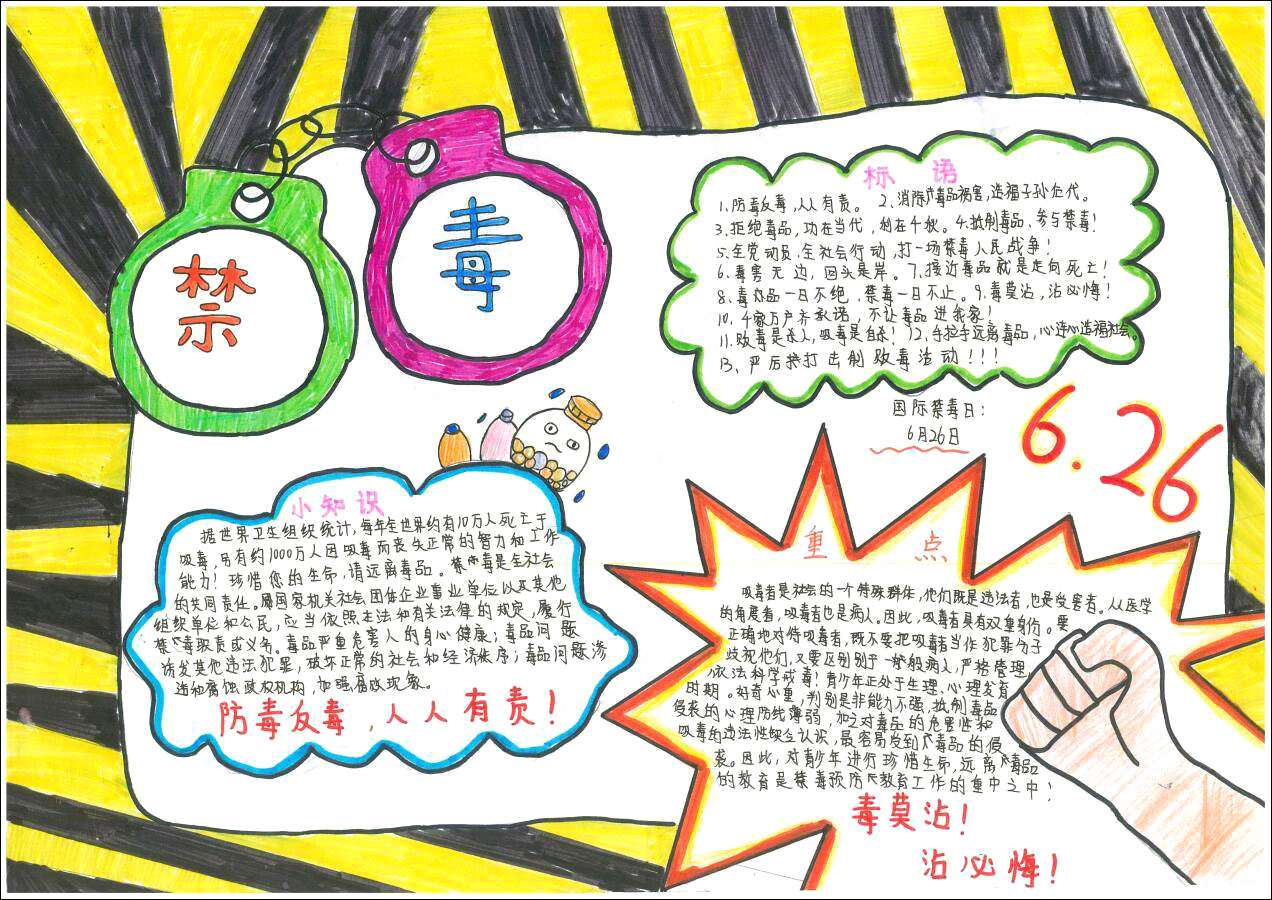 禁
毒
标 语
1、防毒反毒,人人有责。 2、消除毒品祸害,造福子孙后代。
3、拒绝毒品,功在当代,利在千秋。4、抵制毒品、参与禁毒!
5、全党动员、全社会行动,打一场禁毒人民战争!
6、毒害无边,回头是岸。7、接近毒品就是走向死亡!
8、毒品一日不绝,禁毒一日不止。9、毒莫沾,沾必悔!
10、千家万户齐承诺,不让毒品进我家!
11、贩毒是杀人,吸毒是自杀!12、手拉手远离毒品,心连心造福社会。
13、严厉打击制贩毒活动!!!
国际禁毒日:
6月26日
6.26
小知识
据世界卫生组织统计,每年全世界约有10万人死亡于
吸毒,另有约1000万人因吸毒而丧失正常的智力和工作
能力!珍惜您的生命,请远离毒品。禁毒是全社会
的共同责任。国家机关社会团体企业事业单位以及其他
组织单位和公民,应当依照本法和有关法律的规定,履行
禁毒职责或义务。毒品严重危害人的身心健康;毒品问题
诱发其他违法犯罪,破坏正常的社会和经济秩序;毒品问题渗
透和腐蚀政权机构,加强腐败现象。
防毒反毒,人人有责!
重 点
吸毒者是社会的一个特殊群体,他们既是违法者,也是受害者。从医学
的角度看,吸毒者也是病人。因此,吸毒者具有双重身份。要
正确地对待吸毒者,既不要把吸毒者当作犯罪分子
歧视他们,又要区别别于一般病人,严格管理,
依法科学戒毒!青少年正处于生理、心理发育
时期。好奇心重,判别是非能力不强,抵制毒品
侵袭的心理防线薄弱,加之对毒品的危害性和
吸毒的违法性缺乏认识,最容易受到毒品的侵
袭。因此,对青少年进行珍惜生命,远离毒品
的教育是禁毒预防教育工作的重中之中!
毒莫沾!
沾必悔!